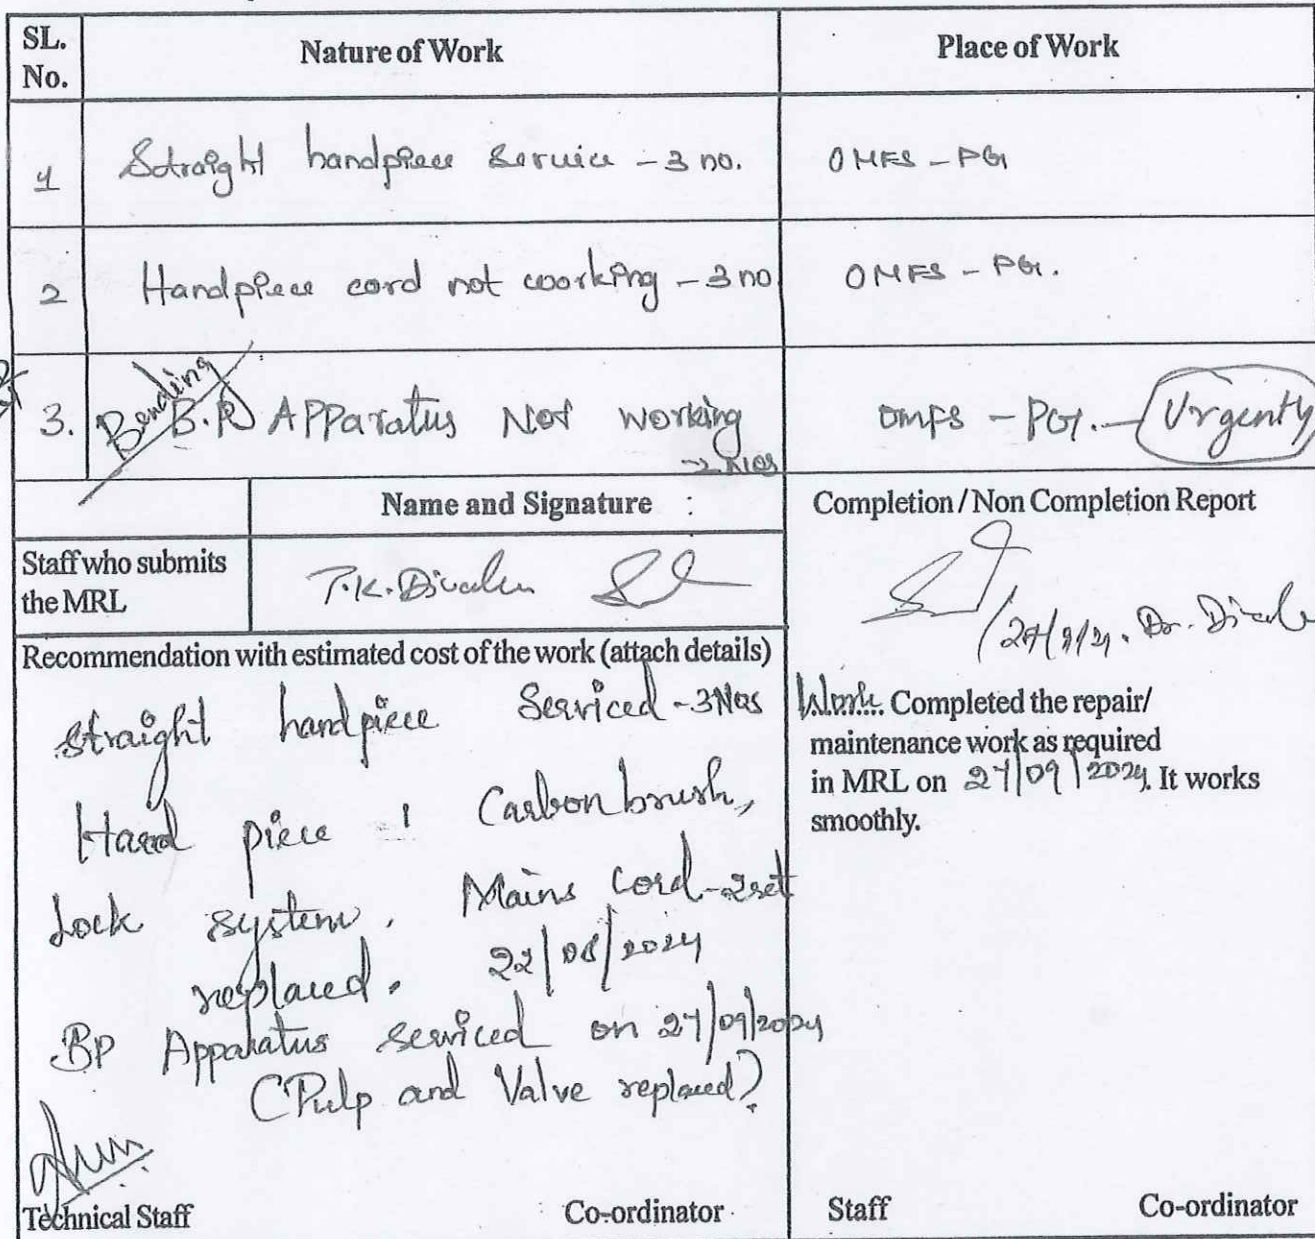 SL. No.
Nature of Work
Place of Work
1
Straight handpiece service - 3 no.
OMFS - PG
2
Handpiece cord not working - 3 no
OMFS - PG.
3.
Bending
B.P Apparatus Not working
OMFS - PG. - Urgently
Name and Signature :
Completion / Non Completion Report
Staff who submits
the MRL
T.K.
Dr.
Recommendation with estimated cost of the work (attach details)
straight handpiece Serviced - 3Nos
Hand piece : Carbon brush,
Lock system, Mains Cord - 2set
replaced. 22/08/2024
BP Apparatus serviced on 27/09/2024
(Pulp and Valve replaced)
Work Completed the repair/
maintenance work as required
in MRL on 27/09/2024. It works
smoothly.
Technical Staff
Co-ordinator
Staff
Co-ordinator